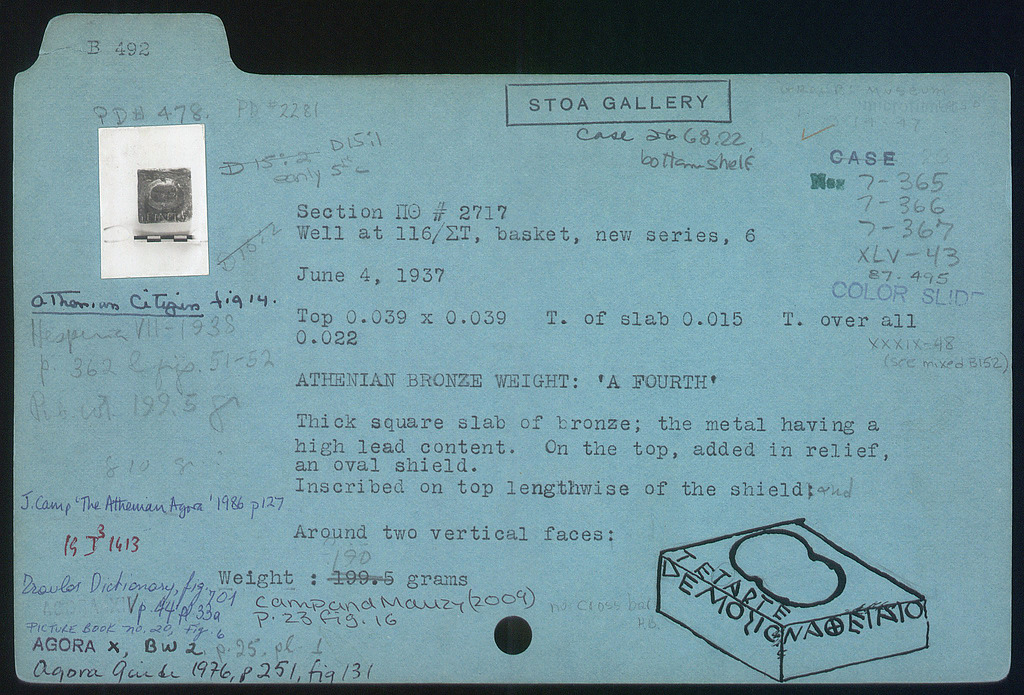 B 492
PD# 478. PD #2281
STOA GALLERY
Case 26 68.22.
bottom shelf
D15:2 D15:1
only 5 c
D15:2
CASE
Neg 7-365
7-366
7-367
XLV-43
87.495
COLOR SLIDE
XXXIX-48
(see mixed B152)
Section ΠΘ # 2717
Well at 116/ΣΤ, basket, new series, 6
June 4, 1937
Athenian Citizen fig 14.
Hesperia VII-1938
p. 362 & figs. 51-52
Top 0.039 x 0.039 T. of slab 0.015 T. over all
0.022
ATHENIAN BRONZE WEIGHT: 'A FOURTH'
Thick square slab of bronze; the metal having a
high lead content. On the top, added in relief,
an oval shield.
Inscribed on top lengthwise of the shield; and
Around two vertical faces:
J. Camp 'The Athenian Agora' 1986 p127
IG I³ 1413
190
Weight : 199.5 grams
Camp and Mauzy (2009)
P. 23 Fig. 16
no cross bar
Travlos Dictionary, fig. 701
PICTURE BOOK no. 20, Fig. 6
AGORA X, BW 2 p. 25, pl. 1
Agora Guide 1976, p 251, fig 131
ΤΕΤΑΡΤΕ
ΔΕΜΟΣΙΟΝΑΘΕΝΑΙΟΝ